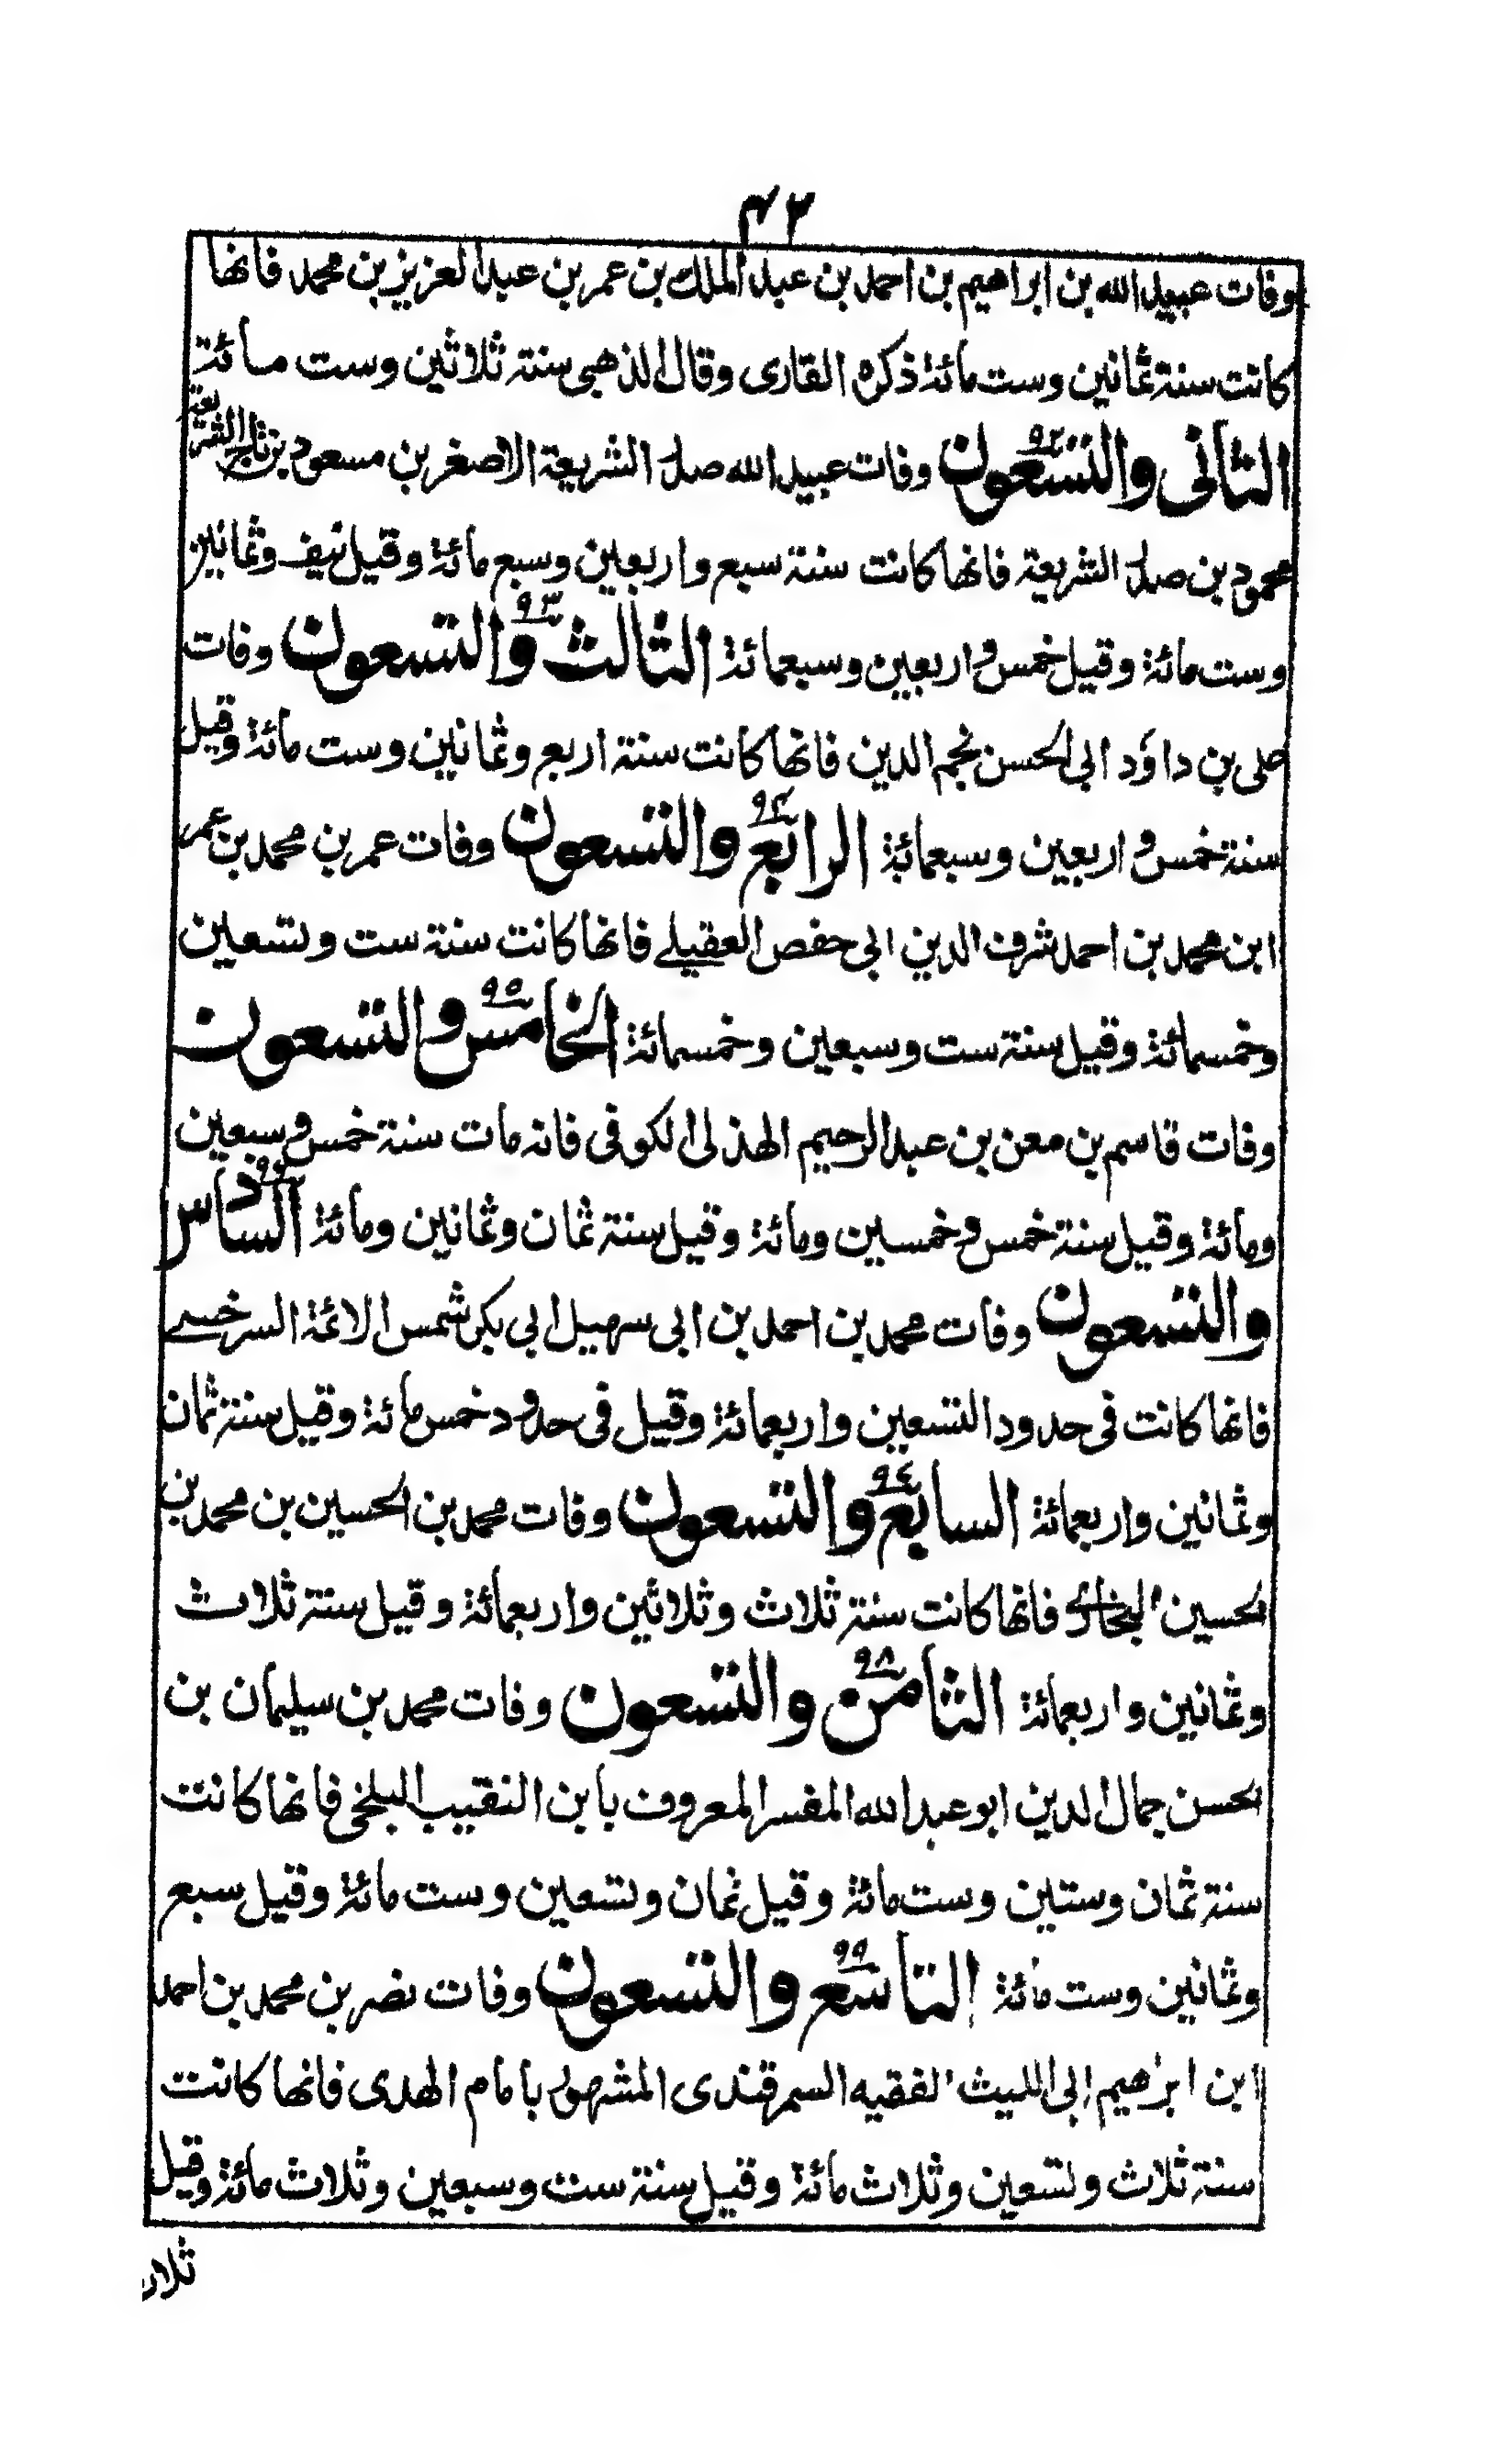 ۴۲
وفات عبیدالله بن ابراهیم بن احمد بن عبد الملك بن عمر بن عبد العزیز بن محمد فانها
كانت سنة ثمانین وست مائة ذكره القاری وقال الذهبی سنة ثلاثین وست مائة
الثانی والتسعون ۹۲ وفات عبید الله صدر الشریعة الاصغر بن مسعود بن تاج الشریعة
محمود بن صدر الشریعة فانها كانت سنة سبع واربعین وسبع مائة وقیل نیف وثمانین
وست مائة وقیل خمس واربعین وسبعمائة الثالث والتسعون ۹۳ وفات
علی بن داؤد ابی الحسن نجم الدین فانها كانت سنة اربع وثمانین وست مائة وقیل
سنة خمس واربعین وسبعمائة الرابع والتسعون ۹۴ وفات عمر بن محمد بن عمر
ابن محمد بن احمد شرف الدین ابی حفص العقیلے فانها كانت سنة ست وتسعین
وخمسمائة وقیل سنة ست وسبعین وخمسمائة الخامس والتسعون ۹۵
وفات قاسم بن معن بن عبد الرحیم الهذلی الكوفی فانه مات سنة خمس وسبعین
ومائة وقیل سنة خمس وخمسین ومائة وقیل سنة ثمان وثمانین ومائة السادس ۹۶
والتسعون وفات محمد بن احمد بن ابی سهیل ابی بكر شمس الائمة السرخسے
فانها كانت فی حدود التسعین واربعمائة وقیل فی حدود خمس مائة وقیل سنة ثمان
وثمانین واربعمائة السابع والتسعون ۹۷ وفات محمد بن الحسین بن محمد بن
الحسین البخاری فانها كانت سنة ثلاث وثلاثین واربعمائة وقیل سنة ثلاث
وثمانین واربعمائة الثامن والتسعون ۹۸ وفات محمد بن سلیمان بن
الحسن جمال الدین ابو عبد الله المفسر المعروف بابن النقیب البلخی فانها كانت
سنة ثمان وستین وست مائة وقیل ثمان وتسعین وست مائة وقیل سبع
وثمانین وست مائة التاسع والتسعون ۹۹ وفات نصر بن محمد بن احمد
ابن ابراهیم ابی اللیث الفقیه السمرقندی المشهور بامام الهدی فانها كانت
سنة ثلاث وتسعین وثلاث مائة وقیل سنة ست وسبعین وثلاث مائة وقیل
ثلاث